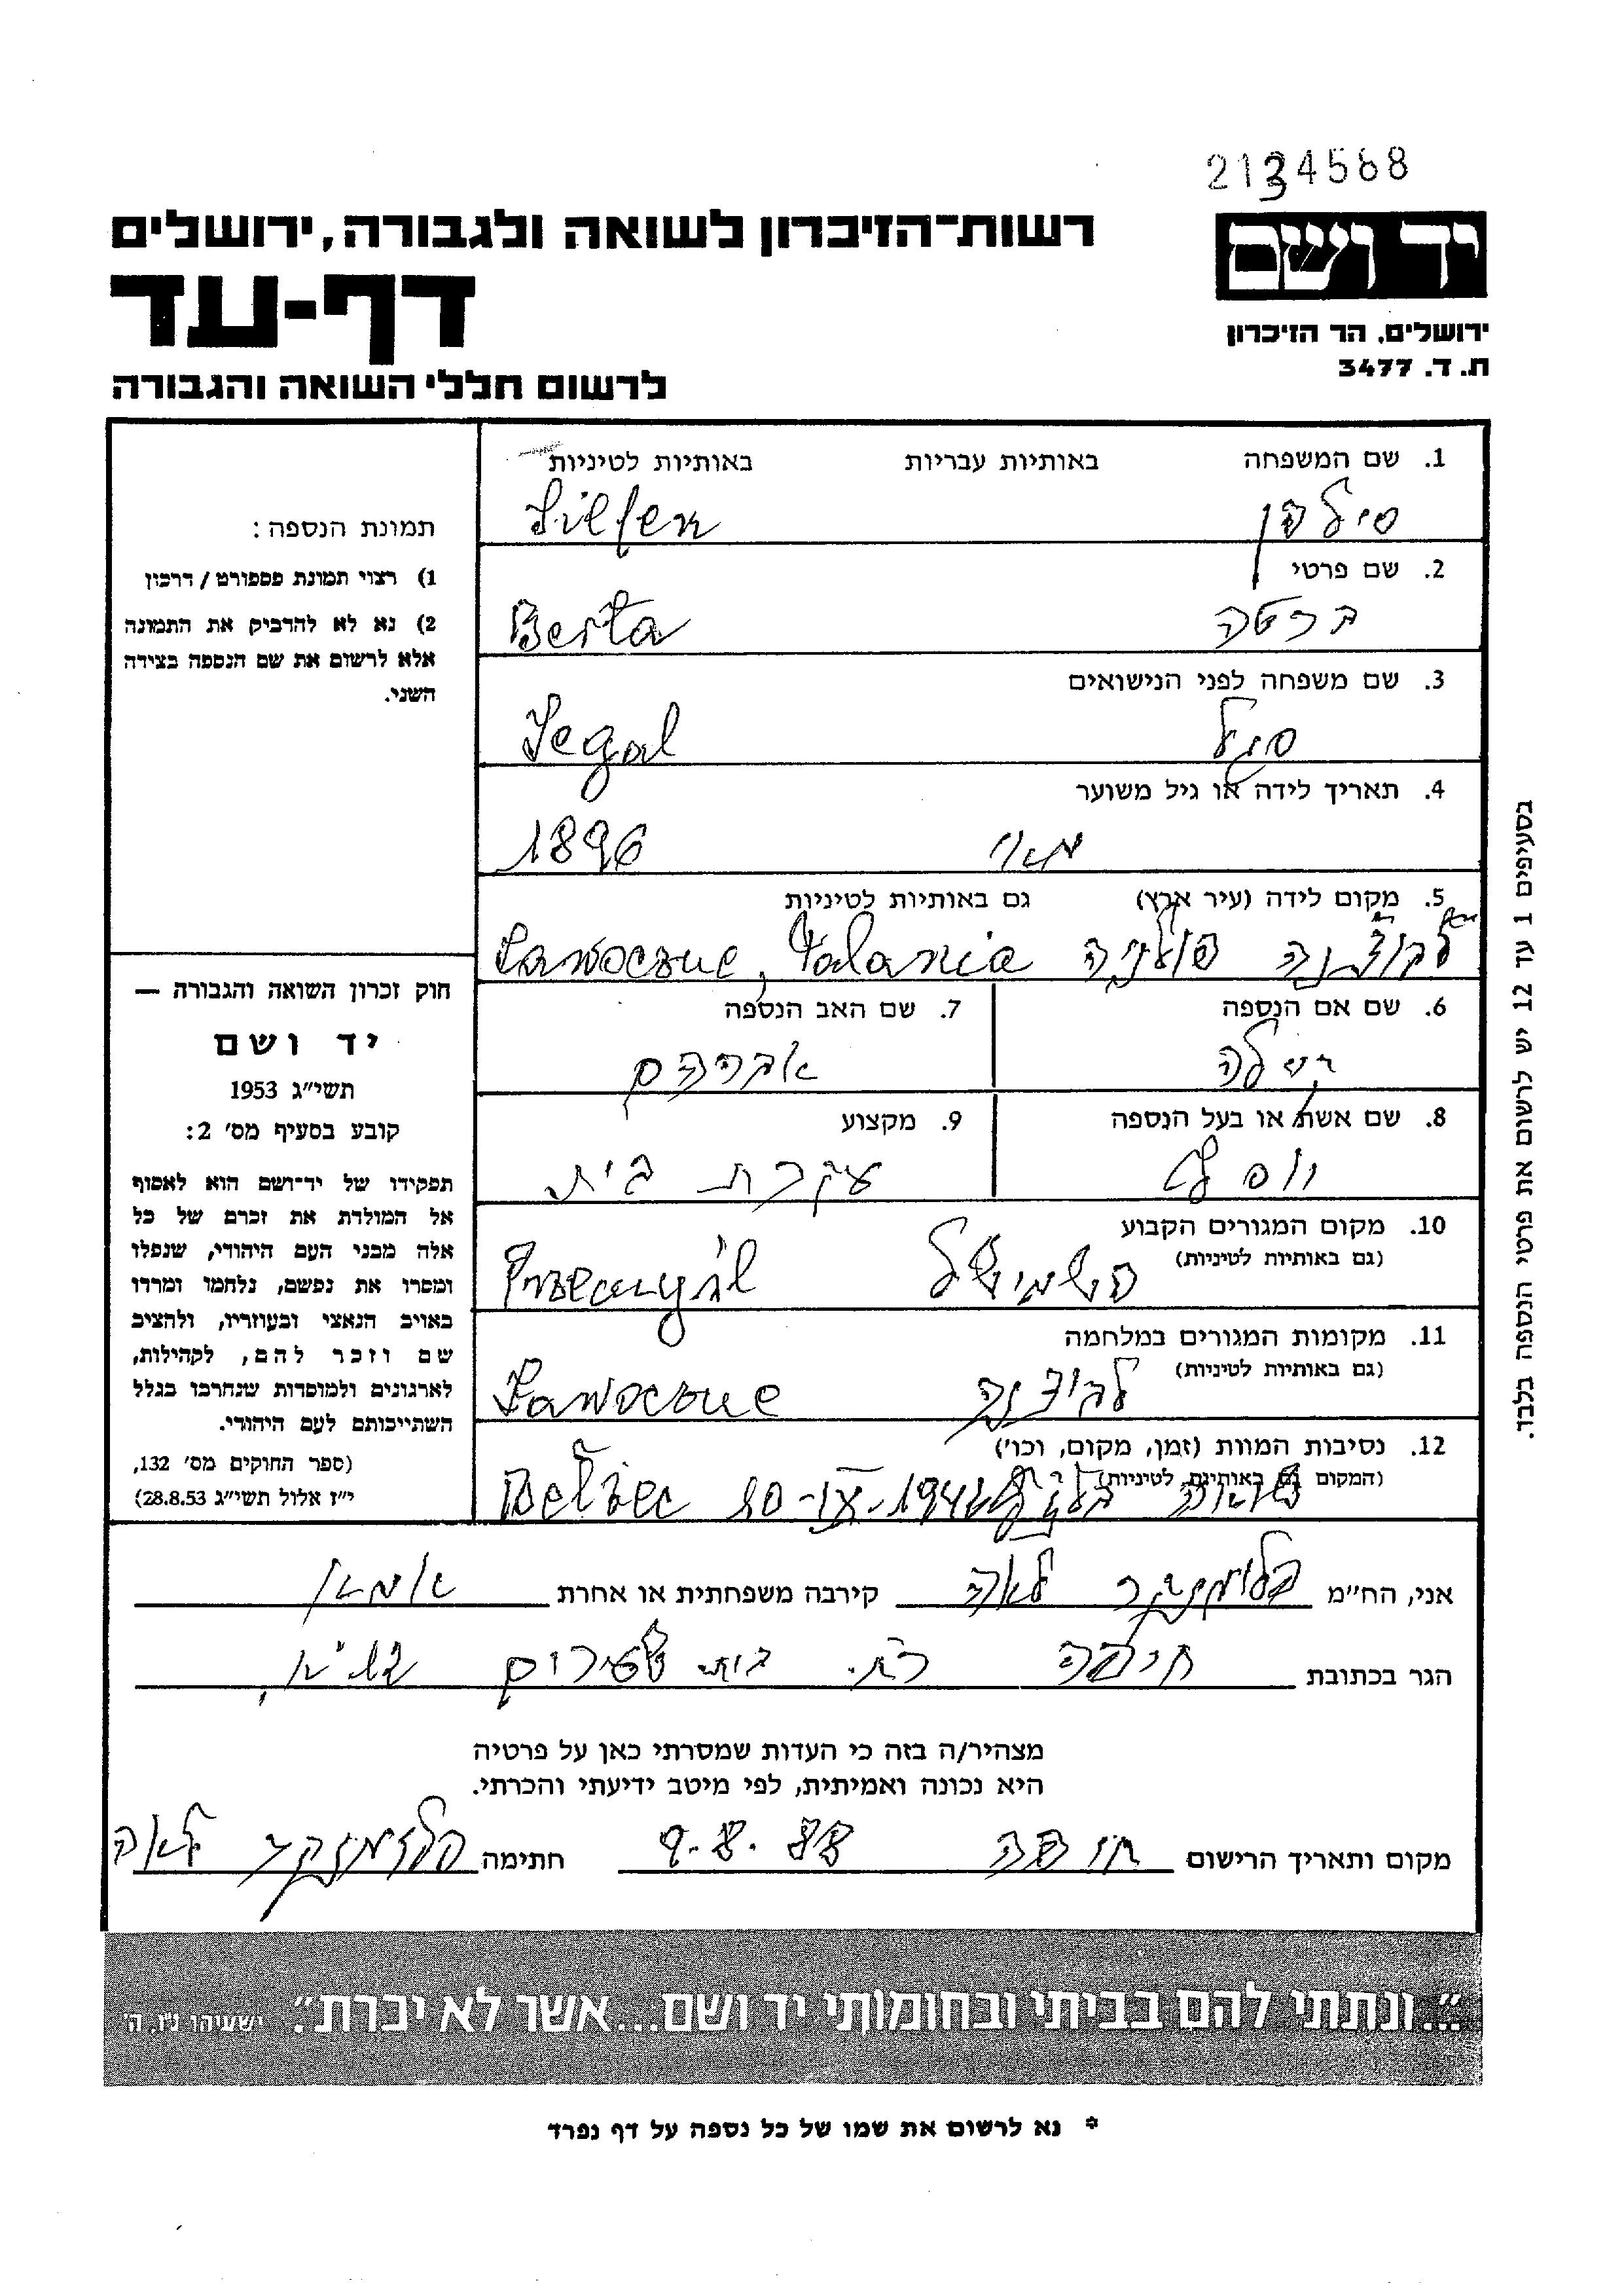 2134568
יד ושם
רשות־הזיכרון לשואה ולגבורה, ירושלים
דף-עד
ירושלים, הר הזיכרון
ת. ד. 3477
לרשום חללי השואה והגבורה
1. שם המשפחה באותיות עבריות באותיות לטיניות
סילפן Silfen
2. שם פרטי
ברטה Berta
3. שם משפחה לפני הנישואים
סגל Segal
4. תאריך לידה או גיל משוער
מאי 1896
5. מקום לידה (עיר ארץ) גם באותיות לטיניות
פולניה Lawoczne,
6. שם אם הנספה 7. שם האב הנספה
אברהם
8. שם אשת או בעל הנספה 9. מקצוע
עקרת בית
10. מקום המגורים הקבוע
(גם באותיות לטיניות)
פשמישל
11. מקומות המגורים במלחמה
(גם באותיות לטיניות)
Lawoczne
12. נסיבות המוות (זמן, מקום, וכו')
(המקום גם באותיות לטיניות)
Bełżec
תמונת הנספה:
1) רצוי תמונת פספורט / דרכון
2) נא לא להדביק את התמונה
אלא לרשום את שם הנספה בצידה
השני.
חוק זכרון השואה והגבורה —
יד ושם
תשי״ג 1953
קובע בסעיף מס׳ 2:
תפקידו של יד־ושם הוא לאסוף
אל המולדת את זכרם של כל
אלה מבני העם היהודי, שנפלו
ומסרו את נפשם, נלחמו ומרדו
באויב הנאצי ובעוזריו, ולהציב
שם וזכר להם, לקהילות,
לארגונים ולמוסדות שנחרבו בגלל
השתייכותם לעם היהודי.
(ספר החוקים מס׳ 132,
י״ז אלול תשי״ג 28.8.53)
בסעיפים 1 עד 12 יש לרשום את פרטי הנספה בלבד.
אני, הח״מ לאה קירבה משפחתית או אחרת
הגר בכתובת חיפה
מצהיר/ה בזה כי העדות שמסרתי כאן על פרטיה
היא נכונה ואמיתית, לפי מיטב ידיעתי והכרתי.
מקום ותאריך הרישום חיפה 9.8.88 חתימה לאה
״...ונתתי להם בביתי ובחומותי יד ושם...אשר לא יכרת״. ישעיהו נ״ו, ה׳
* נא לרשום את שמו של כל נספה על דף נפרד